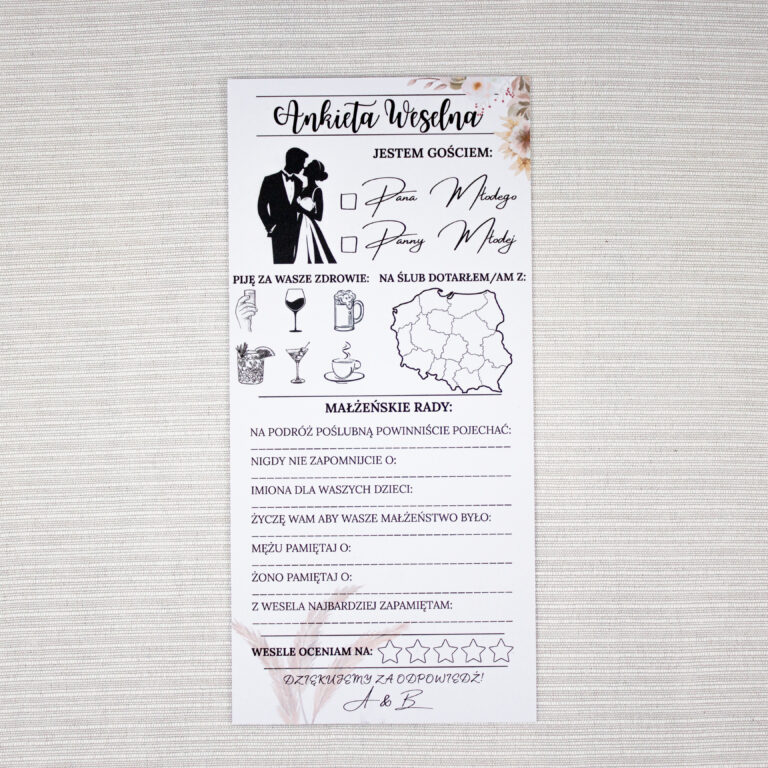 Ankieta Weselna
JESTEM GOŚCIEM:
Pana Młodego
Panny Młodej
PIJĘ ZA WASZE ZDROWIE:
NA ŚLUB DOTARŁEM/AM Z:
MAŁŻEŃSKIE RADY:
NA PODRÓŻ POŚLUBNĄ POWINNIŚCIE POJECHAĆ:
NIGDY NIE ZAPOMNIJCIE O:
IMIONA DLA WASZYCH DZIECI:
ŻYCZĘ WAM ABY WASZE MAŁŻEŃSTWO BYŁO:
MĘŻU PAMIĘTAJ O:
ŻONO PAMIĘTAJ O:
Z WESELA NAJBARDZIEJ ZAPAMIĘTAM:
WESELE OCENIAM NA:
DZIĘKUJEMY ZA ODPOWIEDŹ!
A & B